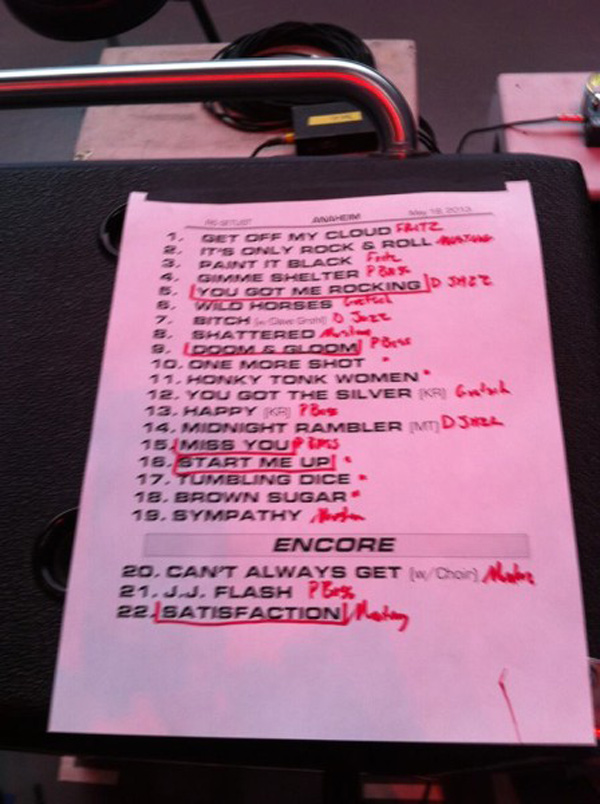 ANAHEIM May 18, 2013
1. GET OFF MY CLOUD FRITZ
2. IT'S ONLY ROCK & ROLL
3. PAINT IT BLACK Fritz
4. GIMME SHELTER P Bass
5. YOU GOT ME ROCKING D JAZZ
6. WILD HORSES Gretsch
7. BITCH (w/Dave Grohl) D Jazz
8. SHATTERED Mustang
9. DOOM & GLOOM P Bass
10. ONE MORE SHOT "
11. HONKY TONK WOMEN "
12. YOU GOT THE SILVER (KR) Gretsch
13. HAPPY (KR) P Bass
14. MIDNIGHT RAMBLER (MT) D JAZZ
15. MISS YOU P BASS
16. START ME UP "
17. TUMBLING DICE "
18. BROWN SUGAR "
19. SYMPATHY
ENCORE
20. CAN'T ALWAYS GET (w/Choir)
21. J.J. FLASH P Bass
22. SATISFACTION Mustang